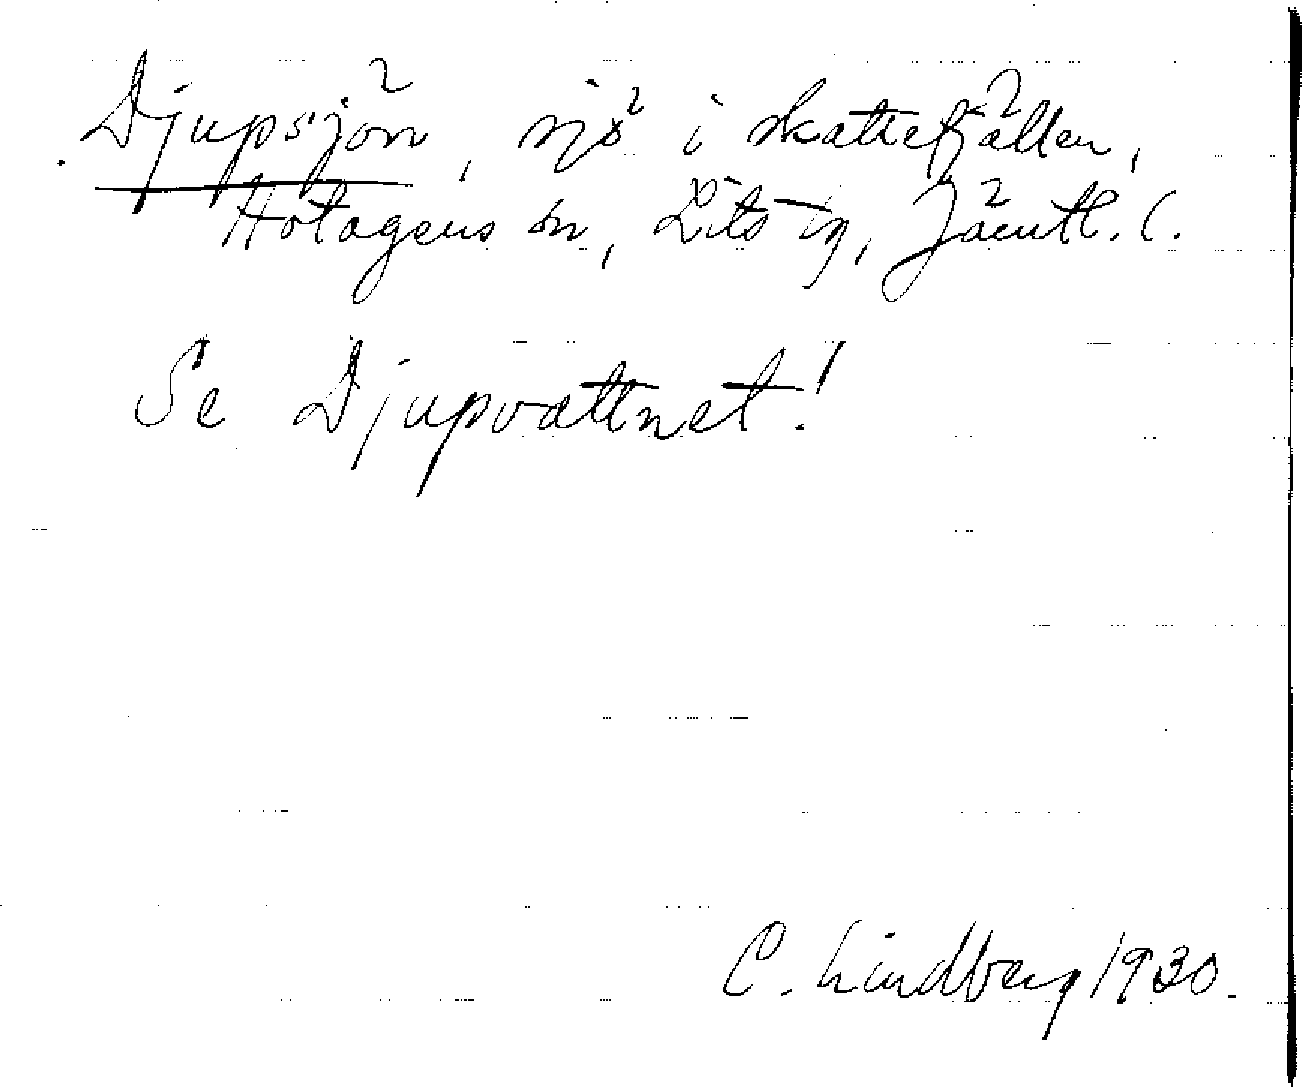 Djupsjön, sjö i skattefjällen,
Hotagens sn, Lits tg, Jämtl. l.
Se Djupvattnet!
C. Lindberg 1930.